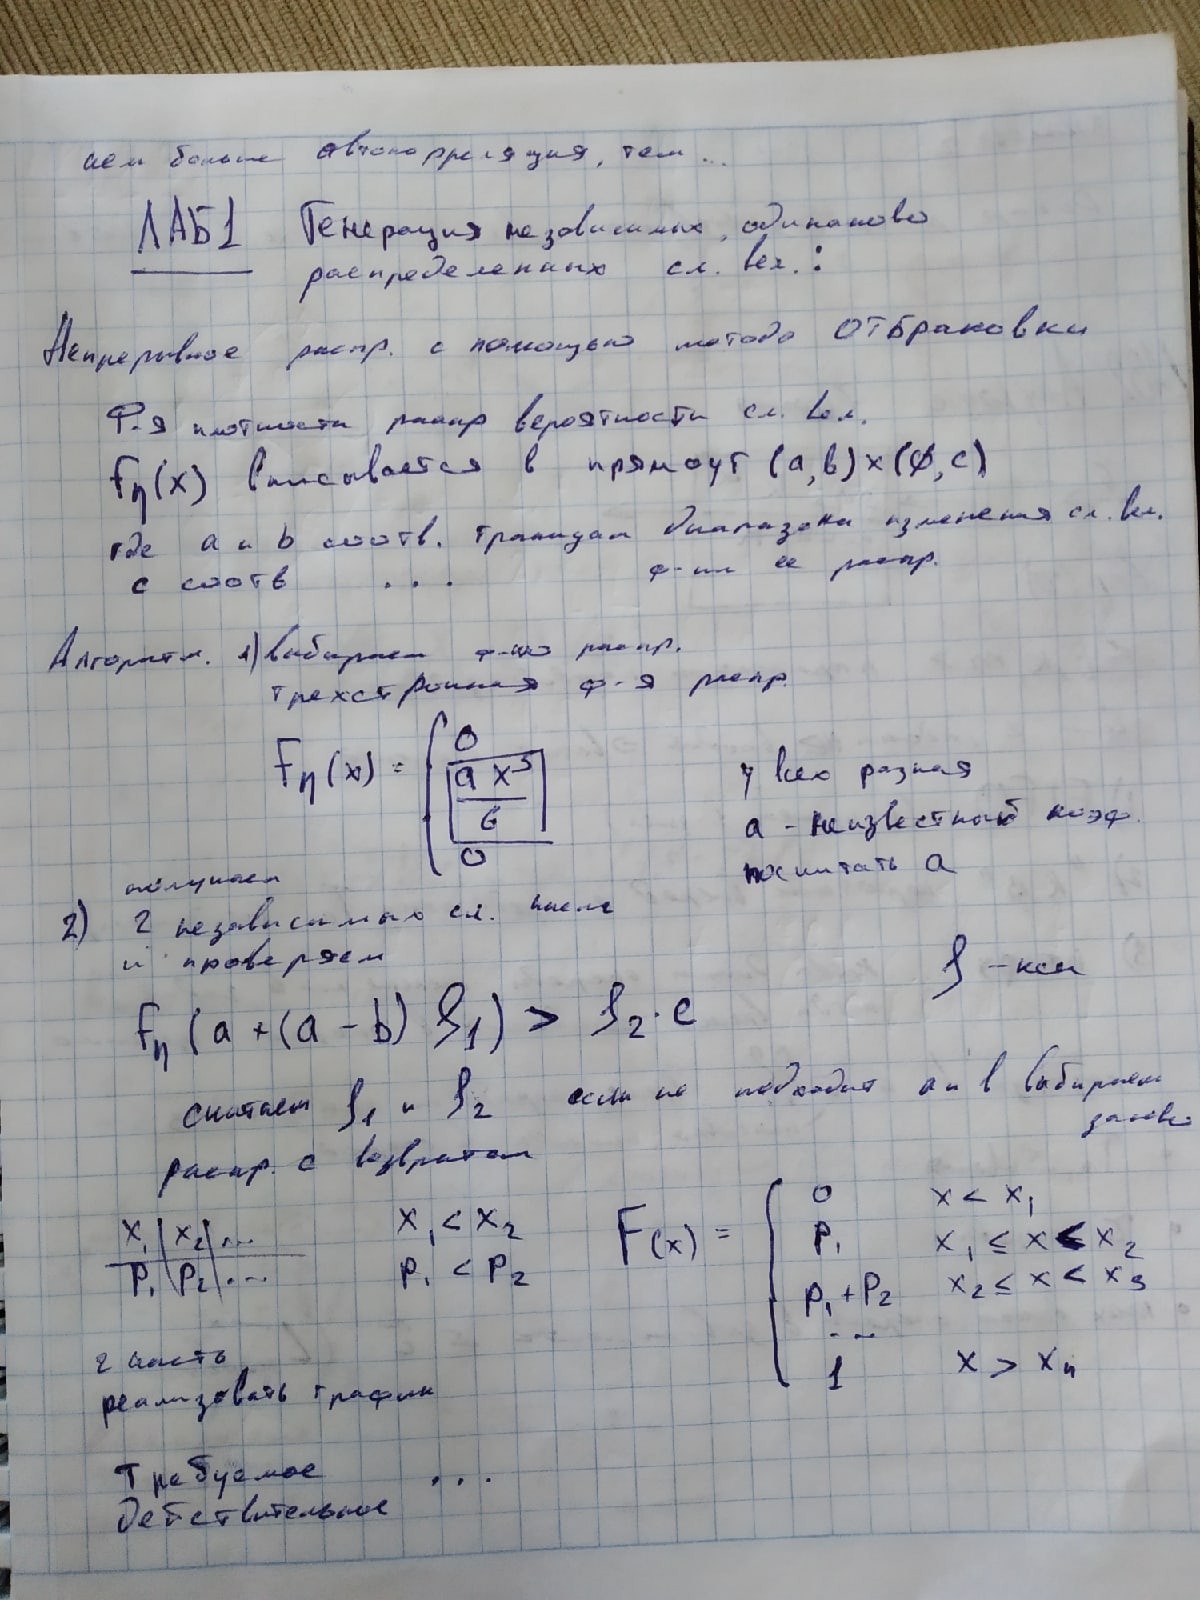 чем больше автокорреляция, тем...
ЛАБ1 Генерация независимых, одинаково
распределенных сл. вел. :
Непрерывное распр. с помощью метода ОТБраковки
Ф-я плотности распр вероятности сл. вел.
Fη(x) вписывается в прямоуг (a,b)×(0,c)
где a и b соотв. границам диапазона изменения сл. вел.
c соотв ... ф-ии ее распр.
Алгоритм. 1) выбираем ф-ию распр.
трехстрочная ф-я распр.
Fη(x) = { 0
a x⁵ / 6
0
у всех разная
a - неизвестный коэф.
посчитать a
получаем
2) 2 независимых сл. числа
и проверяем
ξ - кси
Fη (a + (a - b) ξ1) > ξ2 · c
считаем ξ1 и ξ2 если не подходит a и b выбираем
заново
распр. с возвратом
x1 | x2 | ... x1 < x2
p1 | p2 | ... p1 < p2
F(x) = { 0 x < x1
p1 x1 ≤ x < x2
p1 + p2 x2 ≤ x < x3
...
1 x > xn
2 часть
реализовать график
Требуемое ...
Действительное